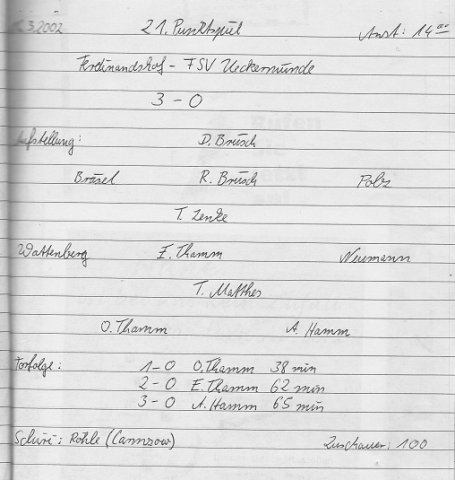 .3.2002 21. Punktspiel Anst: 14⁰⁰
Ferdinandshof - FSV Ueckermünde
3 - 0
Aufstellung: D. Brüsch
Bräsel R. Brüsch Polz
T. Zenke
Wattenberg E. Thamm Neumann
T. Matthes
O. Thamm A. Hamm
Torfolge: 1-0 O. Thamm 38 min
2-0 E. Thamm 62 min
3-0 A. Hamm 65 min
Schiri: Rohle (Cammzow) Zuschauer: 100